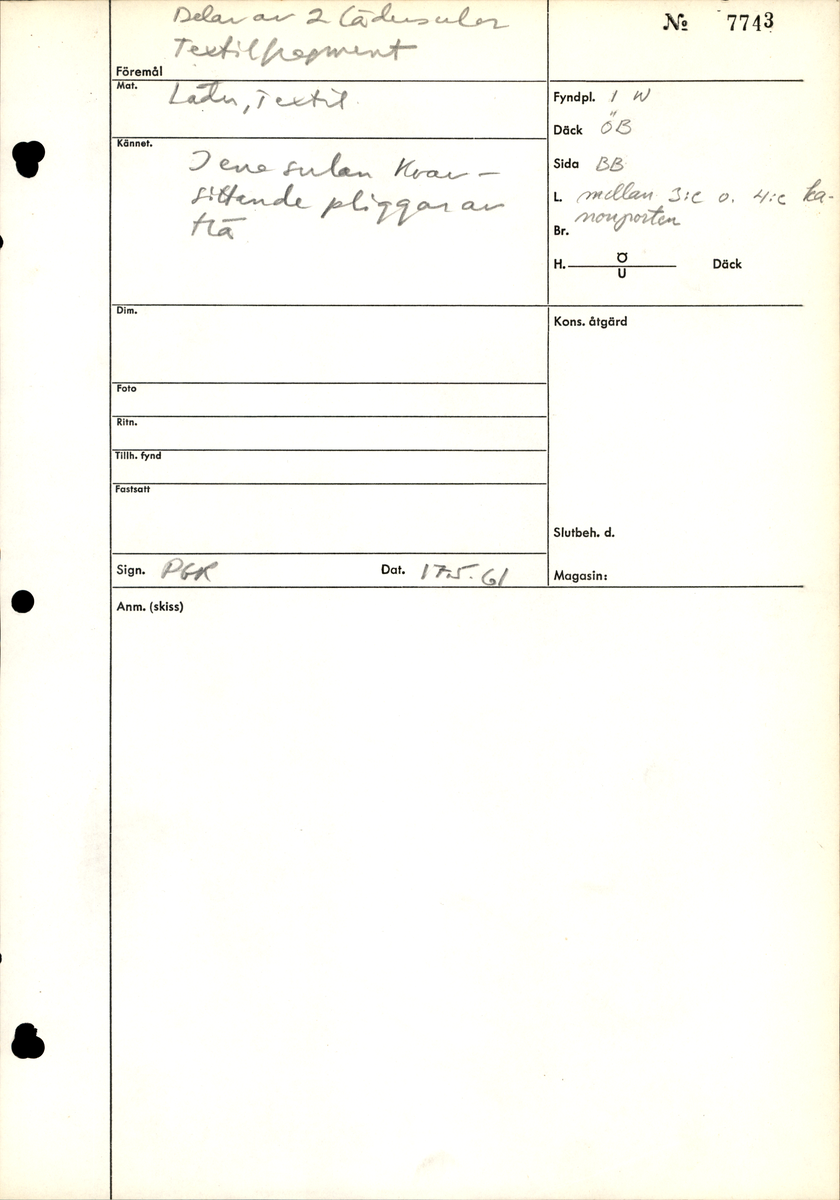 Delar av 2 lädersulor
Textilfragment
Föremål
№ 7743
Mat. Läder, Textil
Kännet.
I ena sulan kvar-
sittande pliggar av
trä
Fyndpl. 1 W
Däck ÖB
Sida BB
L. mellan 3:e o. 4:e ka-
nonporten
Br.
H. Ö
U
Däck
Dim.
Kons. åtgärd
Foto
Ritn.
Tillh. fynd
Fastsatt
Slutbeh. d.
Sign. PGR Dat. 17.5.61
Magasin:
Anm. (skiss)